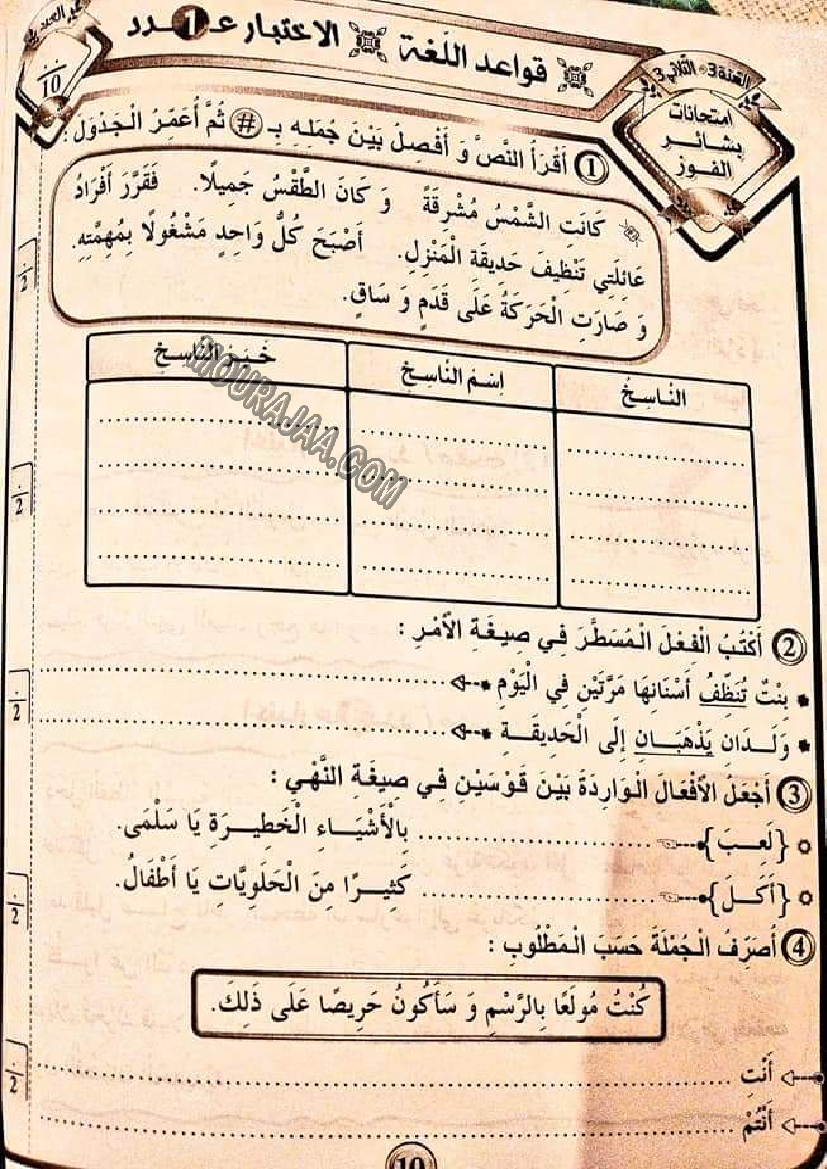 قواعد اللّغة الاختبار عـ1ـدد
السّنة 3 - الثّلاثي 3
امتحانات
بشائر
الفوز
العدد
10
1 أَقْرَأُ النَّصَّ وَ أَفْصِلُ بَيْنَ جُمَلِهِ بِـ # ثُمَّ أُعَمِّرُ الْجَدْوَلَ :
كَانَتِ الشَّمْسُ مُشْرِقَةً وَ كَانَ الطَّقْسُ جَمِيلًا. فَقَرَّرَ أَفْرَادُ
عَائِلَتِي تَنْظِيفَ حَدِيقَةِ الْمَنْزِلِ. أَصْبَحَ كُلُّ وَاحِدٍ مَشْغُولًا بِمُهِمَّتِهِ.
وَ صَارَتِ الْحَرَكَةُ عَلَى قَدَمٍ وَ سَاقٍ.
2
النَّاسِخُ اِسْمُ النَّاسِخِ خَبَرُ النَّاسِخِ
MOURAJAA.COM
2
2 أَكْتُبُ الْفِعْلَ الْمُسَطَّرَ فِي صِيغَةِ الْأَمْرِ :
بِنْتٌ تُنَظِّفُ أَسْنَانَهَا مَرَّتَيْنِ فِي الْيَوْمِ
2
وَلَدَانِ يَذْهَبَانِ إِلَى الْحَدِيقَةِ
3 أَجْعَلُ الْأَفْعَالَ الْوَارِدَةَ بَيْنَ قَوْسَيْنِ فِي صِيغَةِ النَّهْيِ :
{لَعِبَ} .......... بِالْأَشْيَاءِ الْخَطِيرَةِ يَا سَلْمَى.
{أَكَلَ} .......... كَثِيرًا مِنَ الْحَلَوِيَّاتِ يَا أَطْفَالُ.
2
4 أُصَرِّفُ الْجُمْلَةَ حَسَبَ الْمَطْلُوبِ :
كُنْتُ مُولَعًا بِالرَّسْمِ وَ سَأَكُونُ حَرِيصًا عَلَى ذَلِكَ.
أَنْتِ ..........
2
أَنْتُمْ ..........
10